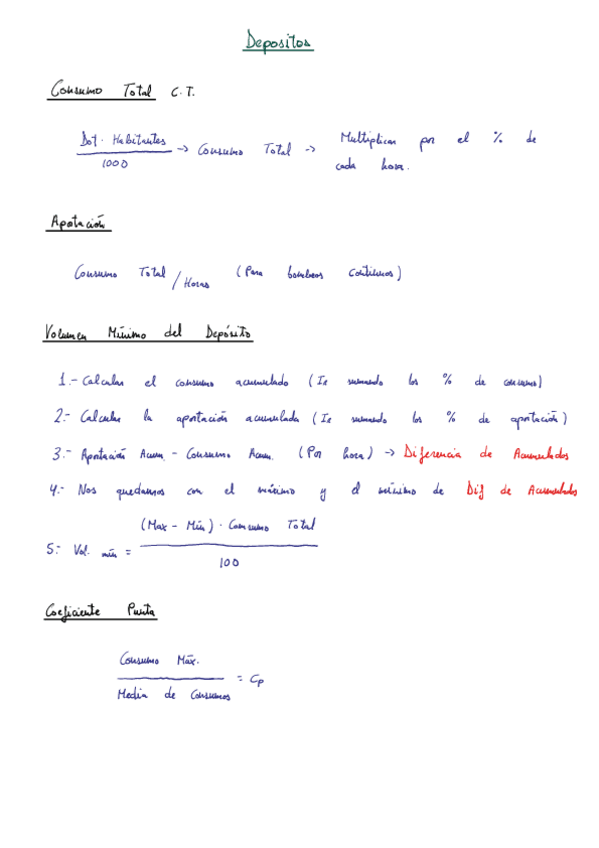 Depositos
Consumo Total C.T.
Dot · Habitantes / 1000 → Consumo Total → Multiplicar por el % de cada hora.
Aportación
Consumo Total / Horas (Para bombeos continuos)
Volumen Mínimo del Depósito
1.- Calcular el consumo acumulado (Ir sumando los % de consumo)
2.- Calcular la aportación acumulada (Ir sumando los % de aportación)
3.- Aportación Acum. - Consumo Acum. (Por hora) → Diferencia de Acumulados
4.- Nos quedamos con el máximo y el mínimo de Dif de Acumulados
5.- Vol. mín = (Max - Mín) · Consumo Total / 100
Coeficiente Punta
Consumo Máx. / Media de Consumos = Cp